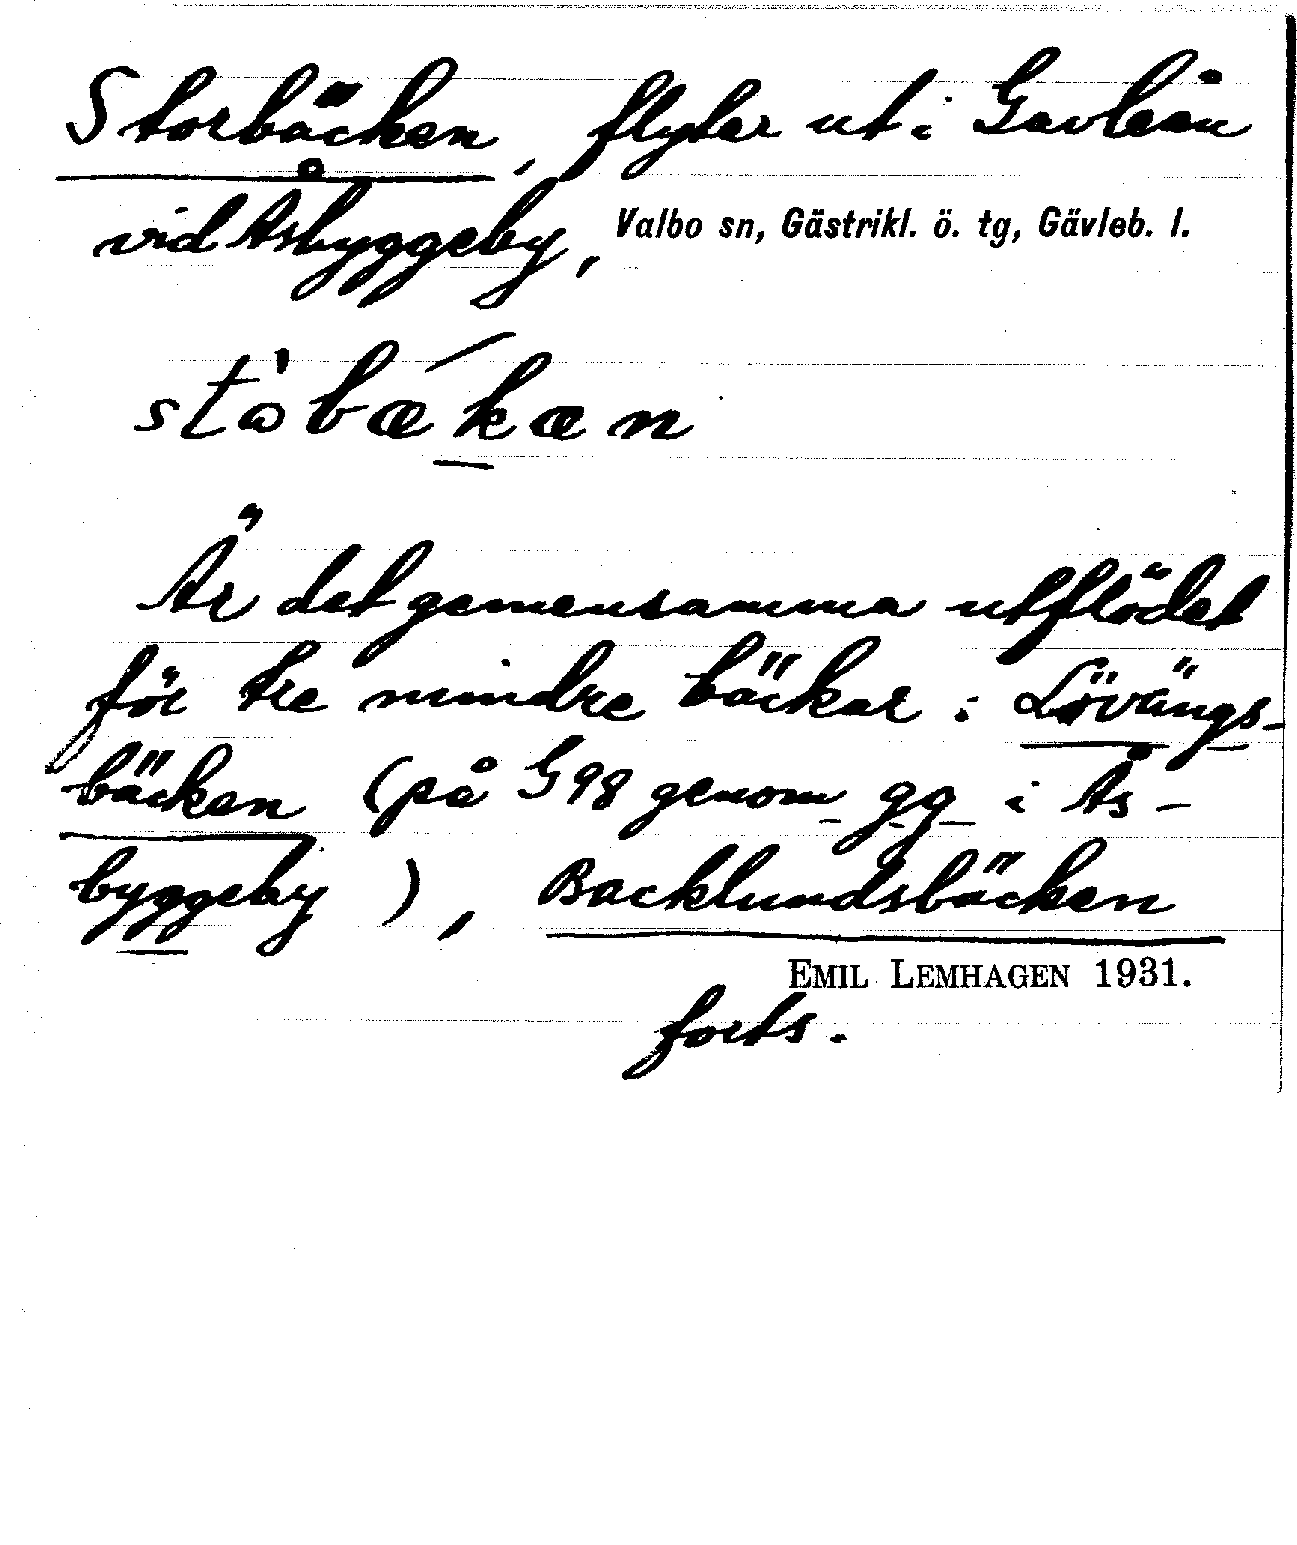 Storbäcken, flyter ut i Gavleån
vid Åsbyggeby, Valbo sn, Gästrikl. ö. tg, Gävleb. l.
stὼbǽkæn
Är det gemensamma utflödet
för tre mindre bäckar: Lövängs-
bäcken (på G98 genom gg i Ås-
byggeby), Backlundsbäcken
EMIL LEMHAGEN 1931.
forts.